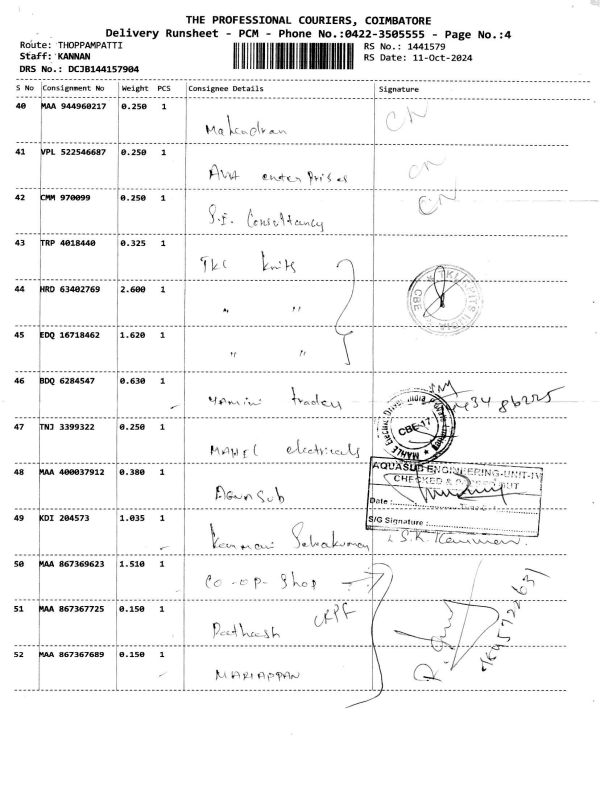 THE PROFESSIONAL COURIERS, COIMBATORE
Delivery Runsheet - PCM - Phone No.:0422-3505555 - Page No.:4
Route: THOPPAMPATTI
RS No.: 1441579
Staff: KANNAN
RS Date: 11-Oct-2024
DRS No.: DCJB144157904
S No Consignment No Weight PCS Consignee Details Signature
40 MAA 944960217 0.250 1
Mahendran CN
41 VPL 522546687 0.250 1
enterprises CN
42 CMM 970099 0.250 1
S.I. Consultancy CN
43 TRP 4018440 0.325 1
TKI Knits
44 HRD 63402769 2.600 1
" "
45 EDQ 16718462 1.620 1
" "
46 BDQ 6284547 0.630 1
traders
47 TNJ 3399322 0.250 1
electricals CBE-17
48 MAA 400037912 0.380 1
AQUASUB ENGINEERING-UNIT-IV
CHECKED &
Aquasub
Date :
49 KDI 204573 1.035 1
S/G Signature :
Selvakumar S.K.
50 MAA 867369623 1.510 1
CO-OP-Shop
51 MAA 867367725 0.150 1
CRPF
52 MAA 867367689 0.150 1
MARIAPPAN